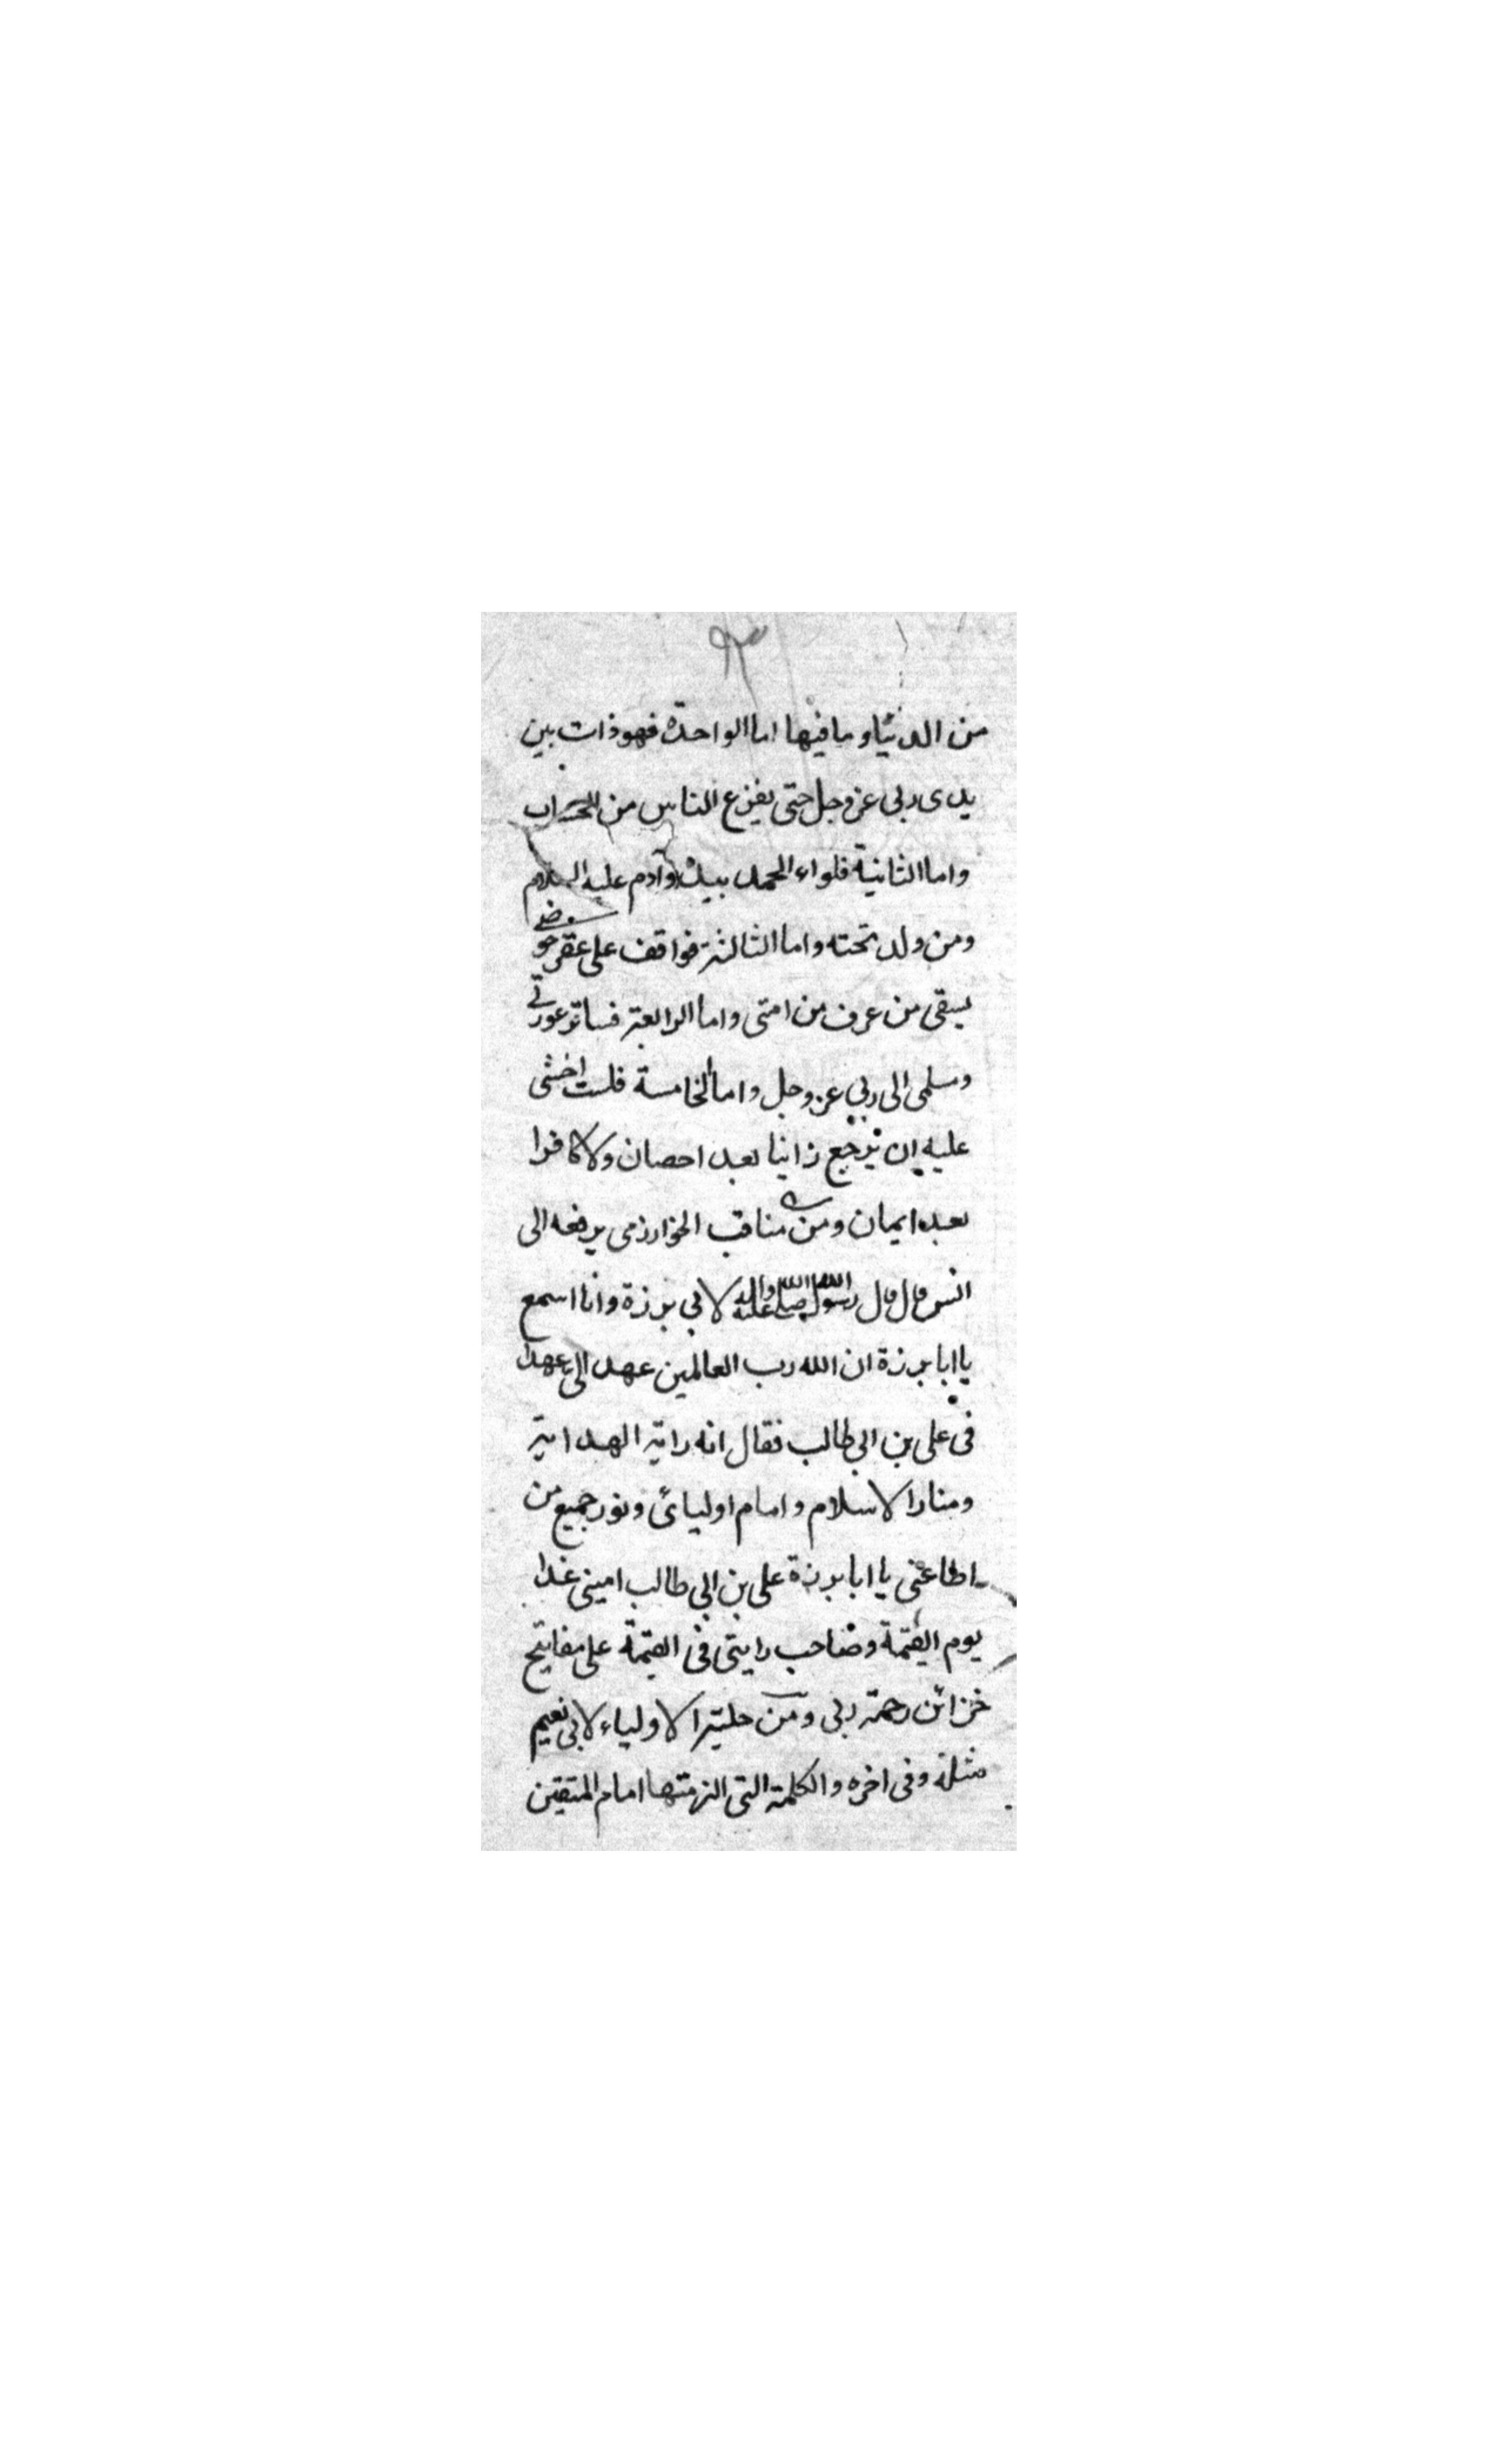 ٩٣
من الدنيا وما فيها اما الواحدة فهو ذات بين
يدى ربى عز وجل حتى يفزع الناس من الحساب
واما الثانية فلواء الحمد بيده وآدم عليه السلام
ومن ولد تحته واما الثالثة فواقف على عقر حوضى
يسقى من عرف من امتى واما الرابعة فساتر عورتى
ومسلمى الى ربى عز وجل واما الخامسة فلست اخشى
عليه ان يرجع زانيا بعد احصان ولا كافرا
بعد ايمان ومن مناقب الخوارزمى يرفعه الى
انس قال قال رسول الله صلى الله عليه واله لابى برزة وانا اسمع
يا ابا برزة ان الله رب العالمين عهد الى عهدا
فى على بن ابى طالب فقال انه راية الهداية
ومنار الاسلام وامام اوليائى ونور جميع من
اطاعنى يا ابا برزة على بن ابى طالب امينى غدا
يوم القيمة وصاحب رايتى فى القيمة على مفاتيح
خزائن رحمة ربى ومن حلية الاولياء لابى نعيم
مثله وفى اخره والكلمة التى الزمتها امام المتقين